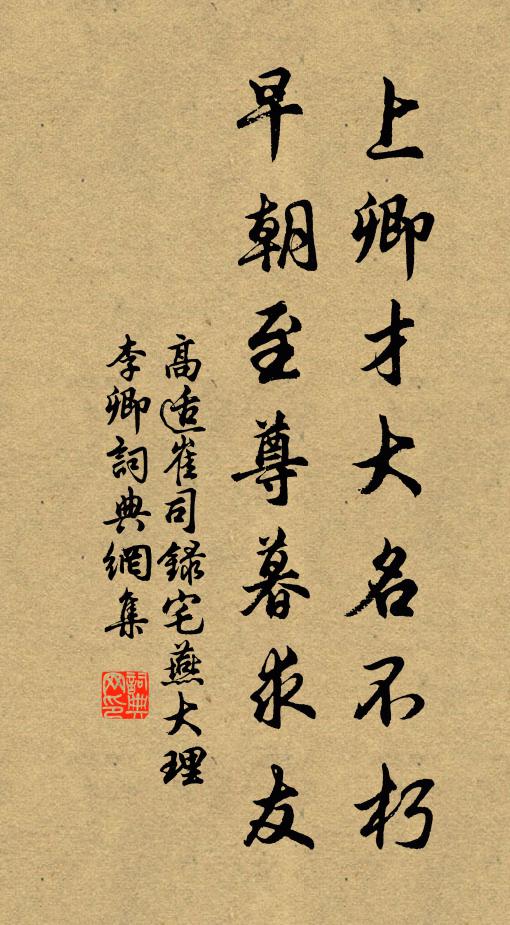 上卿才大名不朽
早朝至尊暮求友
高适崔司錄宅燕大理
李卿詞典網集
詞典网印